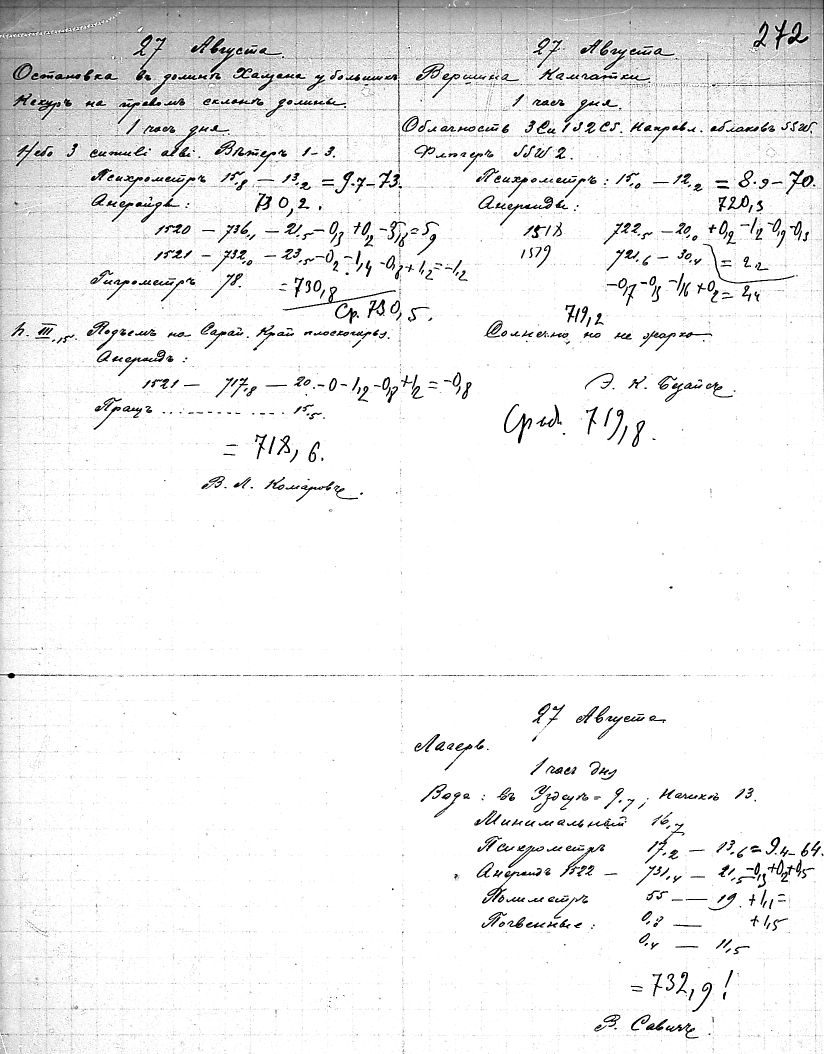 272
27 Августа
Остановка въ долинѣ у большихъ
Кекуръ на правомъ склонѣ долины.
1 часъ дня.
Небо 3 Вѣтеръ 1-3.
Психрометръ 15,8 — 13,2 = 9.7-73.
Анероиды: 730,2.
1520 — 736,1 — 21,5 -0,3 +0,2
1521 — 732,0 — 23,5 -0,2 -1,4 -0,8 +1,2 = -1,2
Гигрометръ 78. = 730,8
Ср. 730,5.
h. III.15. Подъемъ на Сарай. Край
Анероидъ:
1521 — 717,8 — 20. -0 -1,2 -0,8 +1,2 = -0,8
Пращъ ............ 15,5.
= 718,6.
В. Л. Комаровъ.
27 Августа
Вершина Камчатки
1 часъ дня.
Облачность Направл. облаковъ SSW.
Флюгеръ SSW 2.
Психрометръ: 15,0 — 12,2 = 8.9-70.
Анероиды: 720,3
1518 722,5 — 20,0 +0,2 -1,2 -0,9 -0,3
1519 721,6 — 30,4 = 2,2
-0,7 -0,3 -1,6 +0,2 = 2,4
719,2
Солнечно, но не жарко.
Э. К.
Сред. 719,8.
27 Августа
Лагерь.
1 часъ дня
Вода: въ = 9,7; 13.
Минимальный 16,7
Психрометръ 17,2 — 13,6 = 9.4-64.
Анероидъ 1522 — 731,4 — 21,5 -0,3 +0,2 +0,5
Полиметръ 55 — 19 +1,1 =
Почвенные: 0,8 — +1,5
0,4 — 11,5
= 732,9!
В. Савичъ.